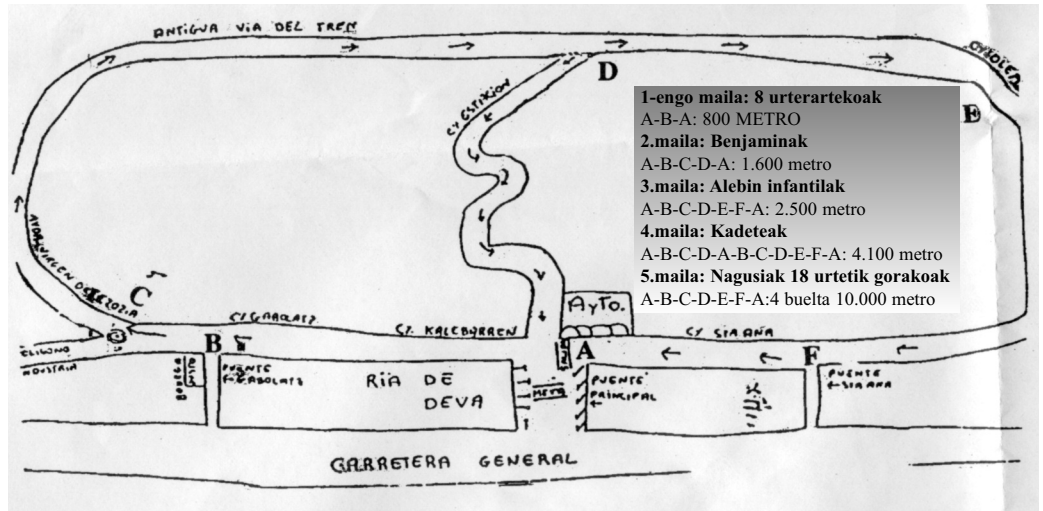 ANTIGUA VIA DEL TREN
D
E
C/ ESTIKION
1-engo maila: 8 urterartekoak
A-B-A: 800 METRO
2.maila: Benjaminak
A-B-C-D-A: 1.600 metro
3.maila: Alebin infantilak
A-B-C-D-E-F-A: 2.500 metro
4.maila: Kadeteak
A-B-C-D-A-B-C-D-E-F-A: 4.100 metro
5.maila: Nagusiak 18 urtetik gorakoak
A-B-C-D-E-F-A:4 buelta 10.000 metro
C
AYTO.
C/ GABOLATZ
C/ KALEBARREN
C/ SIRAÑA
B
A
F
POLIGONO
INDUSTRIA
PUENTE
GABOLATZ
RIA DE
DEVA
META
PUENTE
PRINCIPAL
PUENTE
SIRAÑA
CARRETERA GENERAL